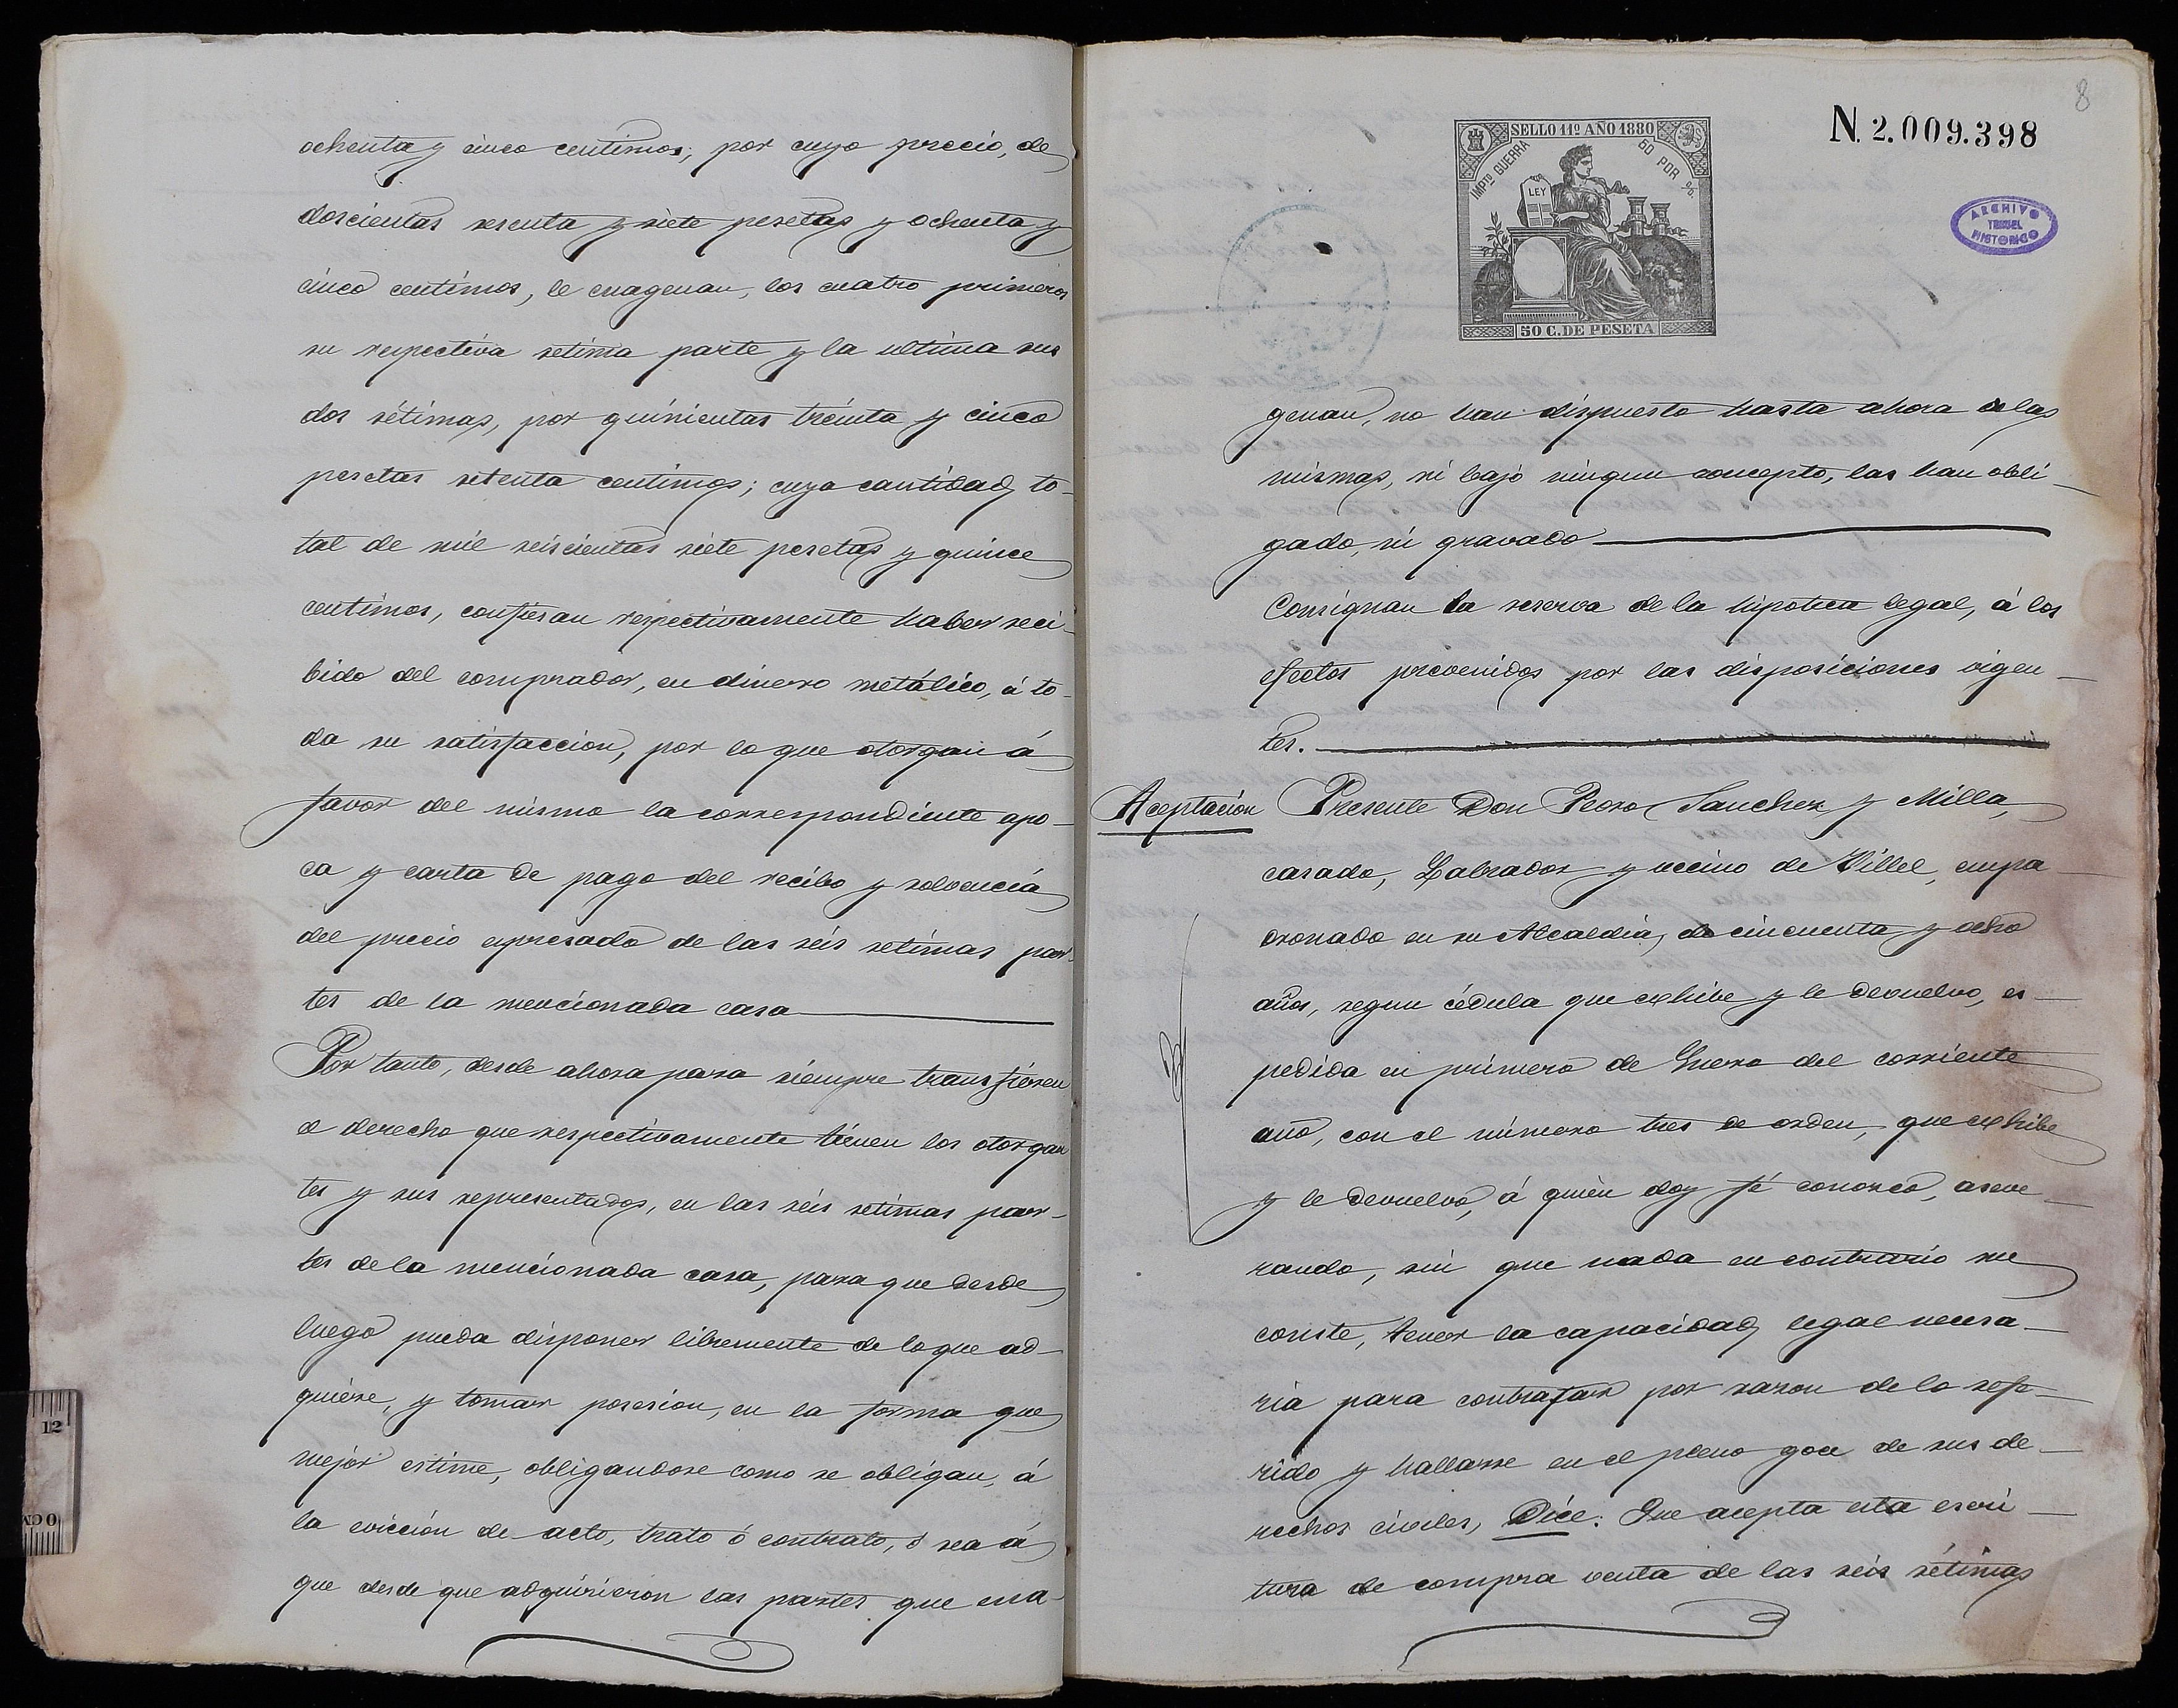 ochenta y cinco centimos; por cuyo precio, de
doscientas sesenta y siete pesetas y ochenta y
cinco centimos, le enagenan, los cuatro primeros
su respectiva setima parte y la ultima sus
dos sétimas, por quinientas treinta y cinco
pesetas setenta centimos; cuya cantidad to-
tal de mil seiscientas siete pesetas y quince
centimos, confiesan respectivamente haber reci-
bido del comprador, en dinero metálico, á to-
da su satisfaccion, por lo que otorgan á
favor del mismo la correspondiente apo-
ca y carta de pago del recibo y solvencia
del precio expresado de las seis setimas par-
tes de la mencionada casa
Por tanto, desde ahora para siempre transfieren
el derecho que respectivamente tienen los otorgan
tes y sus representados, en las seis setimas par-
tes de la mencionada casa, para que desde
luego pueda disponer libremente de lo que ad-
quiere, y tomar posesion, en la forma que
mejor estime, obligandose como se obligan, á
la eviccion de acto, trato ó contrato, ó sea á
que desde que adquirieron las partes que ena-
8
SELLO 11º AÑO 1880
IMPTO GUERRA
50 POR %
LEY
50 C. DE PESETA
N. 2.009.398
ARCHIVO
TERUEL
HISTORICO
genan, no han dispuesto hasta ahora de las
mismas, ni bajo ningun concepto, las han obli-
gado, ni gravado
Consignan la reserva de la hipoteca legal, á los
efectos prevenidos por las disposiciones vigen-
tes.
Aceptacion Presente Don Pedro Sanchez y Milla,
casado, Labrador y vecino de Villel, empa-
dronado en su Alcaldia, de cincuenta y ocho
años, segun cédula que exhibe y le devuelvo, es-
pedida en primero de Enero del corriente
año, con el número tres de orden, que exhibe
y le devuelvo, á quien doy fé conozco, aseve-
rando, sin que nada en contrario me
conste, tener la capacidad legal necesa-
ria para contratar por razon de lo refe-
rido y hallarse en el pleno goce de sus de-
rechos civiles, Dice: Que acepta esta escri-
tura de compra venta de las seis sétimas